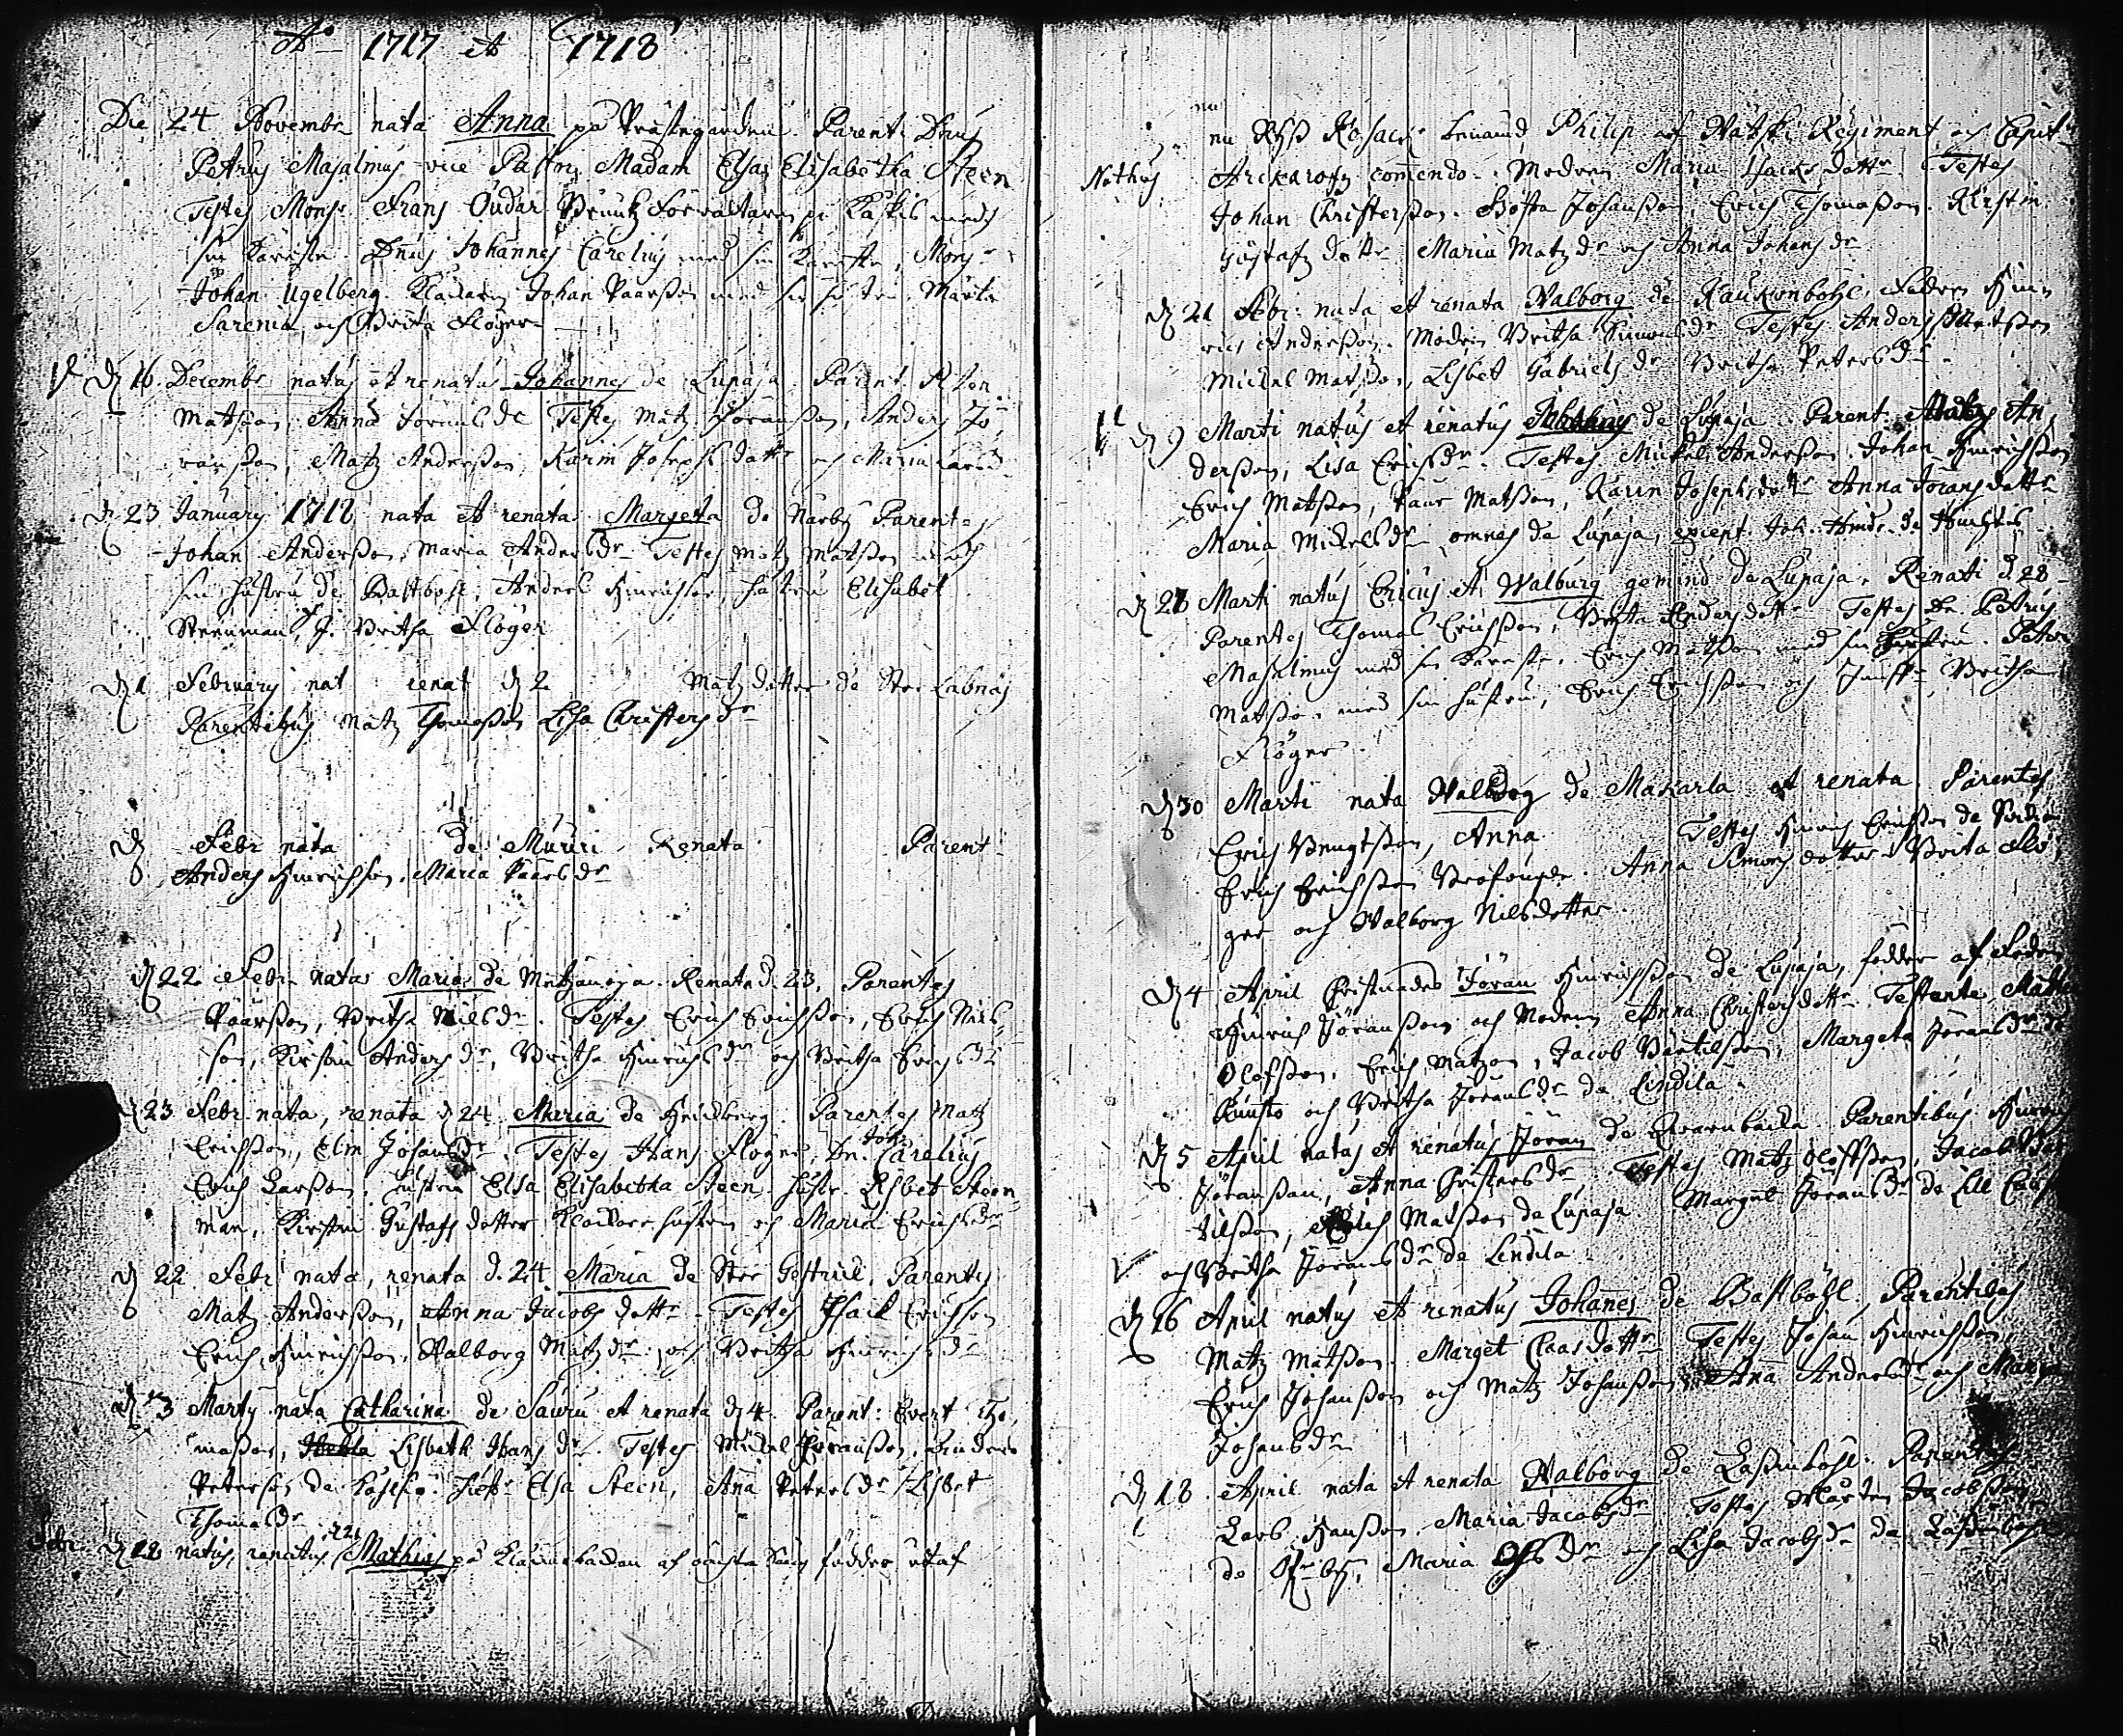 Ao 1717 et 1718
Die 24 Novembr nata Anna på Prästegården. Parent. Dnus
Petrus Masalinus vice Pastor, Madam Elsa Elisabetha Steen
Testes Mons. Frans Oudar Bruuks Förvaltaren på Kåskis med
sin Käreste. Dnus Johannes Carelius med sin Käreste, Mons
Johan Ugelberg. Klåckaren Johan Påarsson med sin hustru, Märta
Sarenia och Brita Flöger
D 16 Decembr natus et renatus Johannes de Lupaja. Parent.
Matsson, Anna Jöransdr Testes Matz Jöransson, Anders Jö
ransson, Matz Andersson, Karin Josephs dottr och Maria
D 23 January 1718 nata et renata Margeta de Närby Parentes
Johan Andersson, Maria Andersdr Testes Matz Matsson med
sin hustru de Bastböhl, Anders Hinrichson, hustru Elisabet
Steenman, J. Britha Flöger
D 1 February nat renat D 2 Matz dotter de Stor Labnäs
Parentibus Matz Thomasson Lisa Christers dr
D Febr nata de Muuri Renata Parent
Anders Hinrichson. Maria Påarsdr
D 22 Febr. nata Maria de Metzänoja. Renata d. 23, Parentes
Påarsson, Britha Nilsdr. Testes Erich Erichsson, Erich Nils
son, Kirstin Anders dr, Britha Hinrichsdr och Britha Erichsdr
D 23 Febr. nata, renata D 24 Maria de Hendberg. Parentes Matz
Erichsson, Elin Johansdr. Testes Hans Flöger, Dn. Joh. Carelius
Erich Larsson, hustru Elsa Elisabetha Steen, hustr. Lisbet Steen
man, Kirstin Gustafs dotter Klockare hustru och Maria Erichsdr
D 22 Febr nata, renata d. 24 Maria de Stor Gestrul, Parentes
Matz Andersson, Anna Jacobs dottr. Testes Isack Erichsson
Erich Hinrichsson, Walborg Matz dr. och Britha Hinrichsdr
D 3 Marty nata Catharina de Sauru et renata D 4. Parent: Evert Tho
masson, Lisbeth Hans dr. Testes Mickel Jöransson, Anders
Peterson de Koskis. Elsa Steen, Ana Petersdr Lisbet
Thomasdr
Febr. D 12 natus, renatus 22 Mathias på Klåckarebackan af oächta Säng födder utaf
nu Ryss Kosack benämd Philip af Watski Regiment och Capit
Nothus Arckarofz comendo. Modren Maria Isacks dottr. Testes
Johan Christersson. Gösta Johansson, Erich Thomasson. Kirstin
Göstafz dottr Maria Matz dr och Anna Johans dr
D 21 Febr: nata et renata Walborg de Rauhonböhle. Fadren Hin
rich Andersson. Modren Britha Simonsdr Testes Anders Matsson
Mickel Matsson, Lisbet Gabriels dr Britha Petersdr.
D 9 Marti natus et renatus de Lupaja. Parent. Matz An
dersson, Lisa Erichsdr. Testes Mickel Andersson. Johan Hinrichsson
Erich Matsson, Påar Matsson, Karin Josephsdottr Anna Jörans dottr
Maria Mickelsdr omnes de Lupaja, except. Joh. Hindr. de
D 27 Marti natus Ericus et Walburg gemini de Lupaja. Renati d. 28
Parentes Thomas Erichsson, Brita Anders dottr Testes Dn. Petrus
Masalinus med sin Käreste. Erich Matsson med sin hustru. Petter
Matsson med sin hustru, Erich Erichsson och Jungfr Britha
Flöger
D 30 Marti nata Walborg de Makarla et renata. Parentes
Erich Bengtsson, Anna Testes Hinrich Erichsson de
Erich Erichsson. Anna Simons dotter Brita Flö
ger och Walborg Nilsdotter.
D 4 April Christnades Jöran Hinrichsson de Lupaja, födder af Fadren
Hinrich Jöransson och Modren Anna Christersdottr. Testente Matz
Olofsson, Erich Matzon, Jacob Bertilsson, Margeta Jöransdr de
Kuusto och Britha Jöransdr de Lindila.
D 5 April natus et renatus Jöran de Qwarnbacka. Parentibus Hinrich
Jöransson, Anna Christersdr, Testes Matz Olofsson, Jacob Ber
tilsson, Erich Matsson de Lupaja Marget Jöransdr de Lill
och Britha Jöransdr de Lindila
D 16 April natus et renatus Johanes de Bastböhl. Parentibus
Matz Matsson. Marget Claas dottr Testes Johan Hinrichsson,
Erich Johansson och Matz Johansson, Ana Andersdr och Maria
Johansdr
D 18 April nata et renata Walborg de Lassinböhl. Parentes
Lars Hansson. Maria Jacobsdr. Testes Mårten Jacobsson
de Maria dr och Lisa Jacobsdr de Lassinböhl